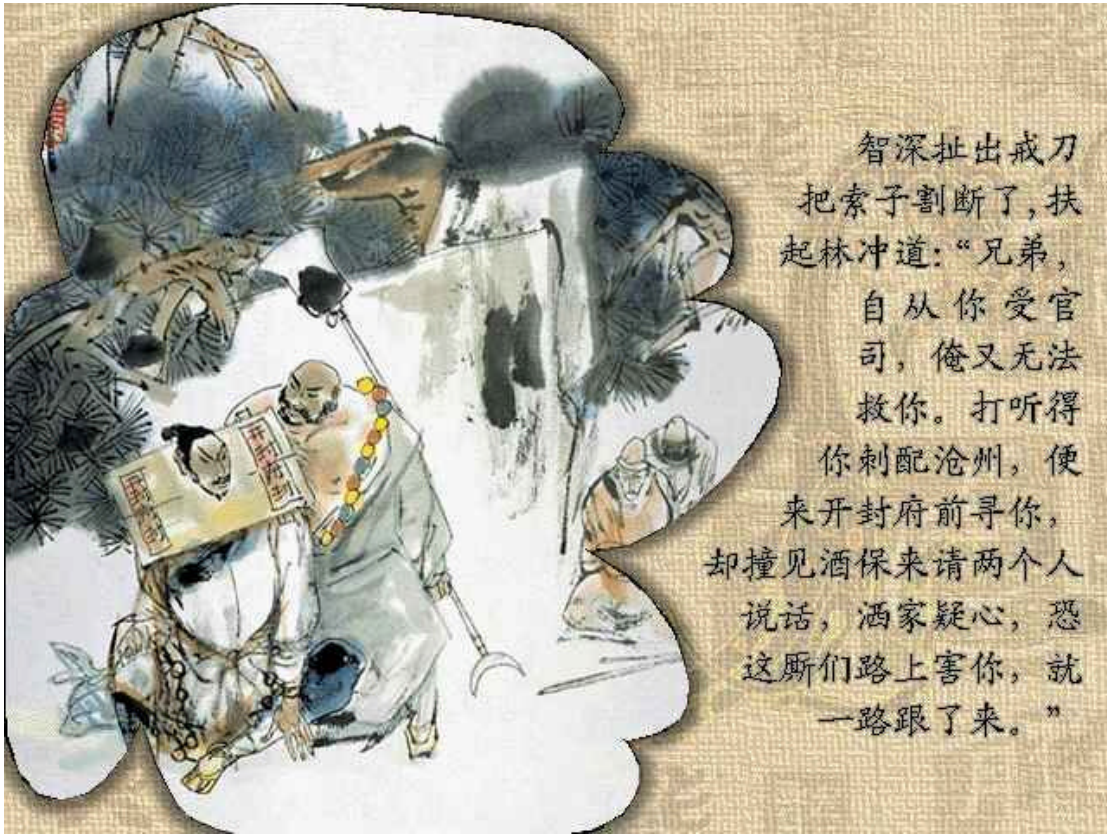 智深扯出戒刀
把索子割断了，扶
起林冲道：“兄弟，
自从你受官
司，俺又无法
救你。打听得
你刺配沧州，便
来开封府前寻你，
却撞见酒保来请两个人
说话，洒家疑心，恐
这厮们路上害你，就
一路跟了来。”